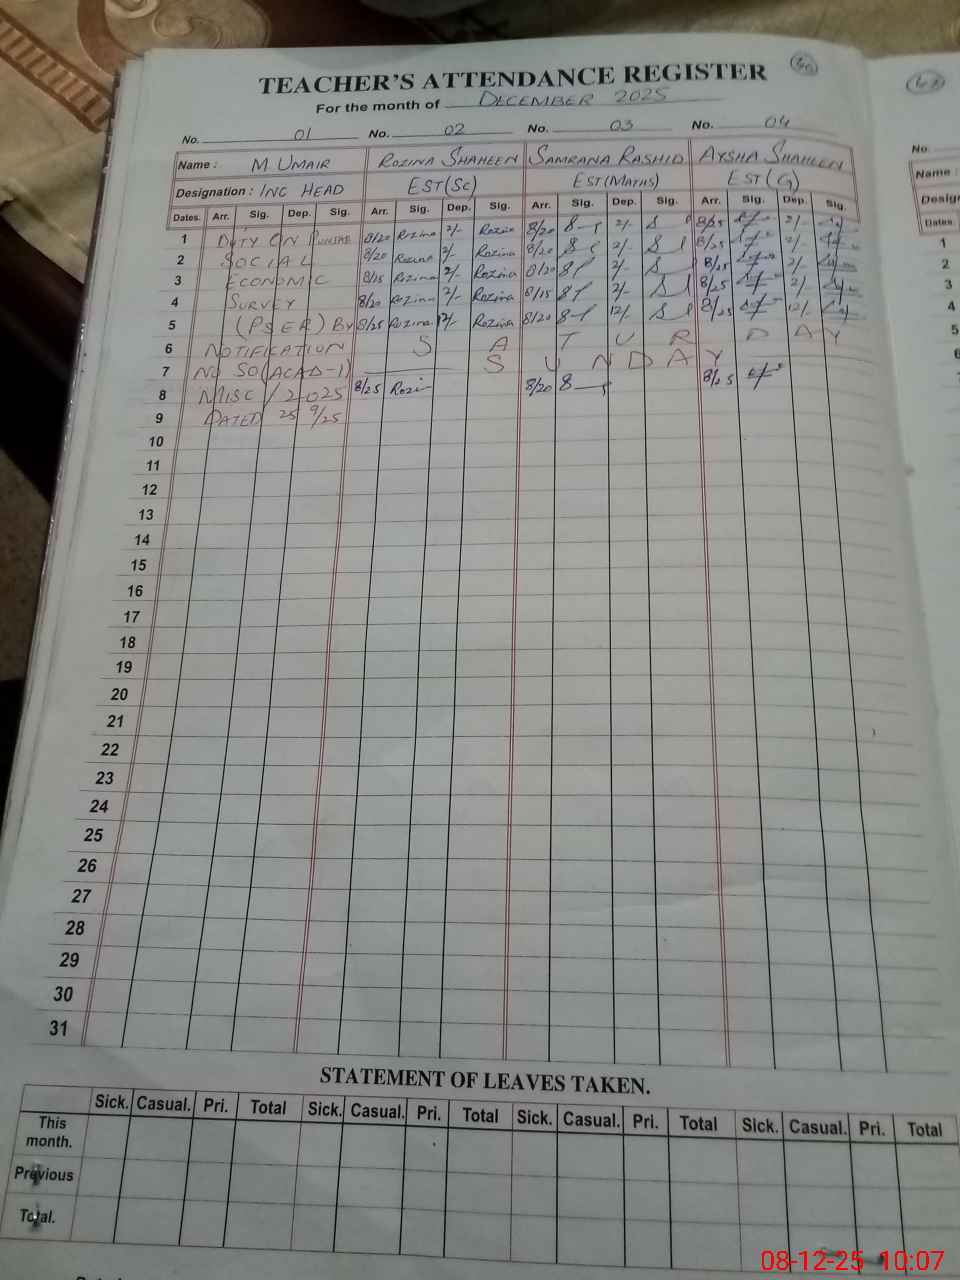 TEACHER'S ATTENDANCE REGISTER
For the month of DECEMBER 2025
No. 01 No. 02 No. 03 No. 04 No.
Name : M UMAIR ROZINA SHAHEEN SAMRANA RASHID AYSHA SHAHEEN Name :
Designation : INC HEAD EST(SC) EST(MATHS) EST(G)
Dates. Arr. Sig. Dep. Sig. Arr. Sig. Dep. Sig. Arr. Sig. Dep. Sig. Arr. Sig. Dep. Sig. Dates
1 DUTY ON PUNJAB 8/20 Rozina 2/- Rozina 8/20 2/- 8/25 2/- 1
2 SOCIAL 8/20 Rozina 2/- Rozina 8/20 2/- 8/25 2/- 2
3 ECONOMIC 8/15 Rozina 2/- Rozina 8/20 2/- 8/25 2/- 3
4 SURVEY 8/20 Rozina 2/- Rozina 8/15 2/- 8/25 2/- 4
5 (PSER) BY 8/25 Rozina 12/- Rozina 8/20 12/- 8/25 12/- 5
6 NOTIFICATION S A T U R D A Y 6
7 NO SO(ACAD-1) S U N D A Y
8 MISC / 2025 8/25 Rozi 8/20 8/25
9 DATED 25 9/25
10
11
12
13
14
15
16
17
18
19
20
21
22
23
24
25
26
27
28
29
30
31
STATEMENT OF LEAVES TAKEN.
Sick. Casual. Pri. Total Sick. Casual. Pri. Total Sick. Casual. Pri. Total Sick. Casual. Pri. Total
This month.
Previous
Total.
08-12-25 10:07